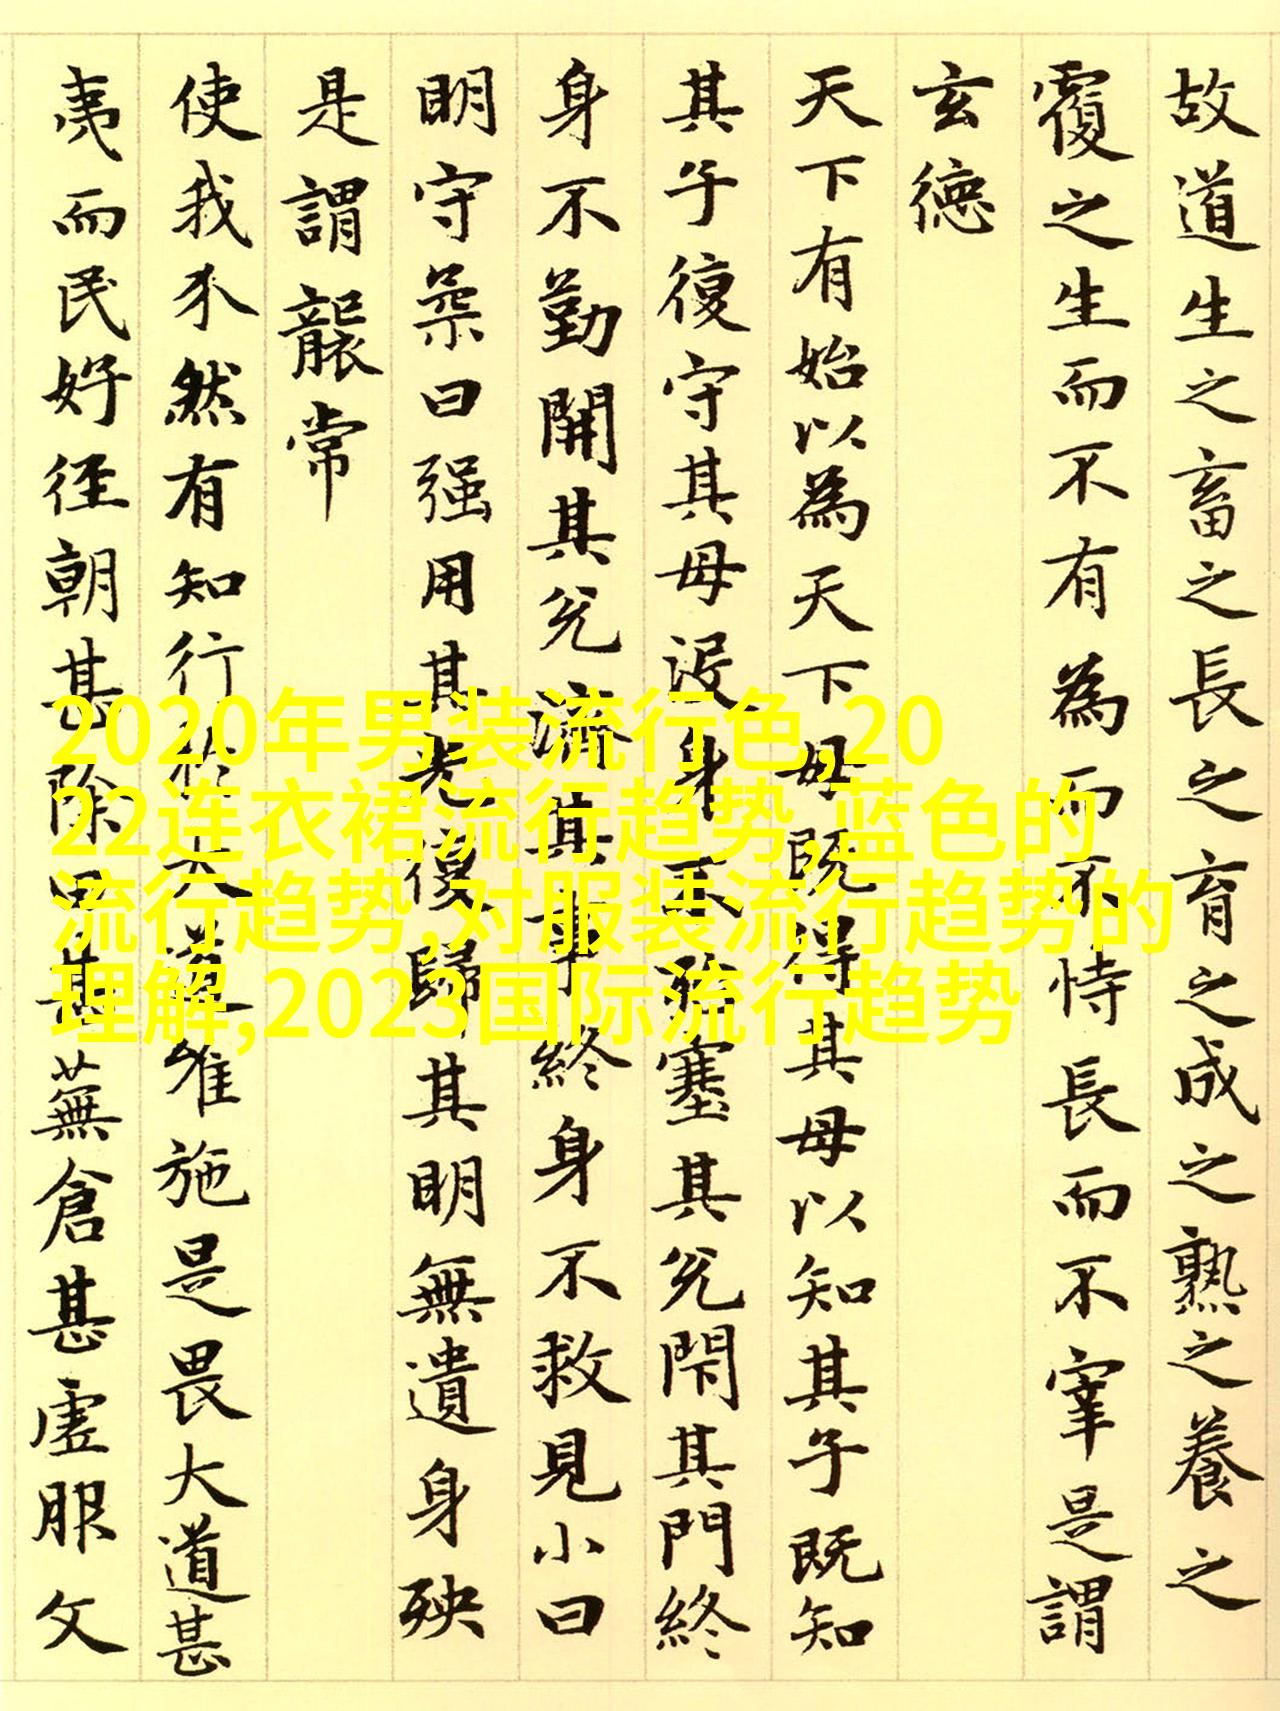 故道生之畜之長之育之成之熟之養之
覆之生而不有為而不恃長而不宰是謂
玄德
天下有始以為天下母既得其母以知其子既知
其子復守其母沒身不殆塞其兌閇其門終
身不勤開其兌濟其事終身不救見小曰
明守柔曰强用其光復歸其明無遺身殃
是謂襲常
使我介然有知行於大道唯施是畏大道甚
夷而民好徑朝甚除田甚蕪倉甚虛服文
2020年男装流行色,20
22连衣裙流行趋势,蓝色的
流行趋势,对服装流行趋势的
理解,2023国际流行趋势